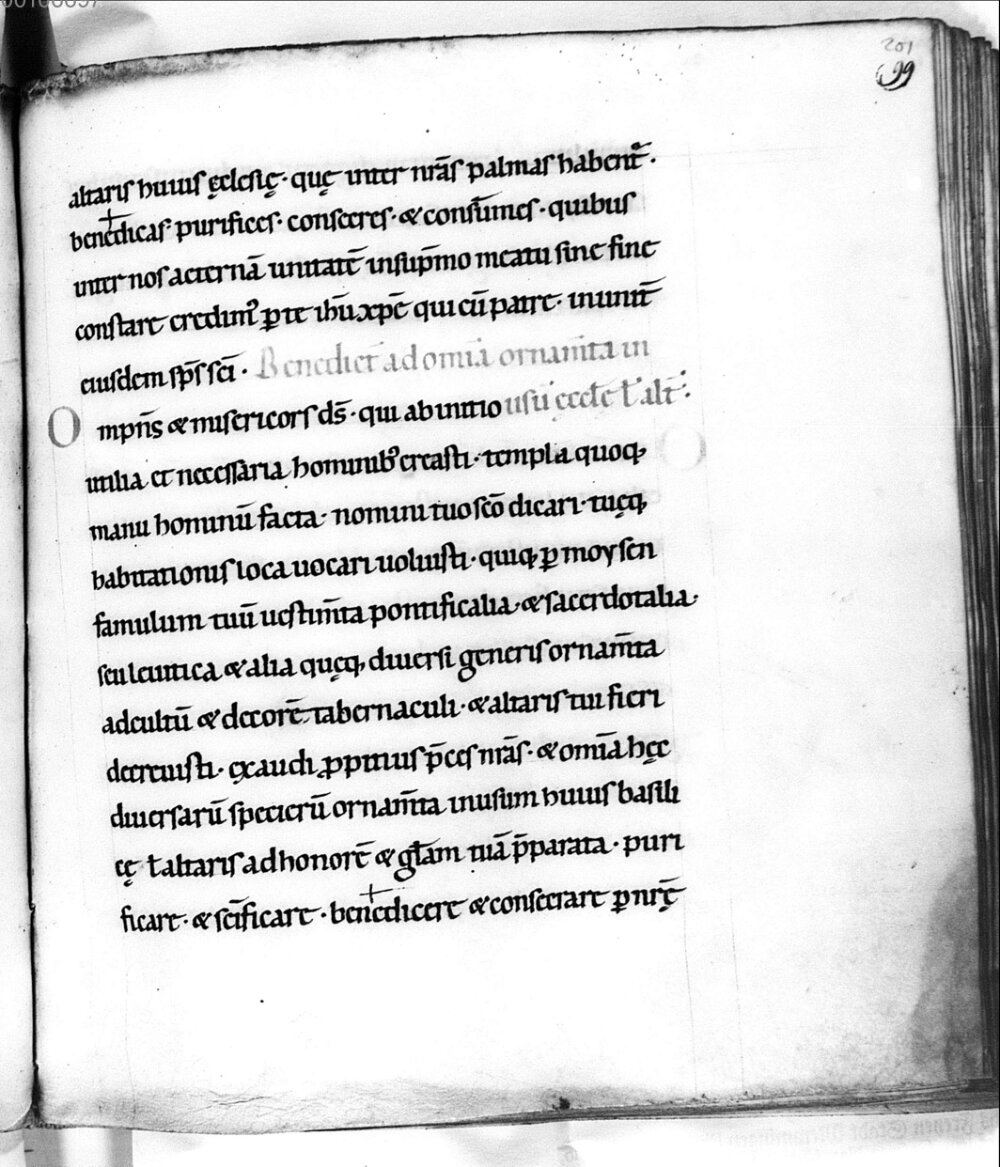 201
99
altaris huius ęclesię· quę inter nr̄as palmas habent᷑·
benedicas purifices· consecres· & consūmes· quibus
inter nos aeternā unitatē insup̄mo meatu sine fine
constare credim᷒ ꝑ te ihū xp̄e qui cū patre· inunit̄
eiusdem sp̄s sc̄i · Benedict̄ ad om̄ia ornam̄ta in
Omp̄ns & misericors ds̄· qui ab initio usū ęccłę ł alt̄·
utilia et necessaria hominib᷒ creasti· templa quoq;
manu hominū facta· nomini tuo sc̄o dicari· tuęq;
habitationis loca uocari uoluisti· quiq; ꝑ moysen
famulum tuū uestim̄ta pontificalia· & sacerdotalia·
seu leuitica & alia quęq; diuersi generis ornam̄ta
ad cultū & decorē tabernaculi· & altaris tui fieri
decreuisti· exaudi ꝓpitius p̄ces nr̄as· & om̄ia hęc
diuersarū specierū ornam̄ta in usum huius basili
cę ł altaris ad honorē & głam tuā p̄parata· puri
ficare· & sc̄ificare· benedicere & consecrare ꝑ nr̄ę